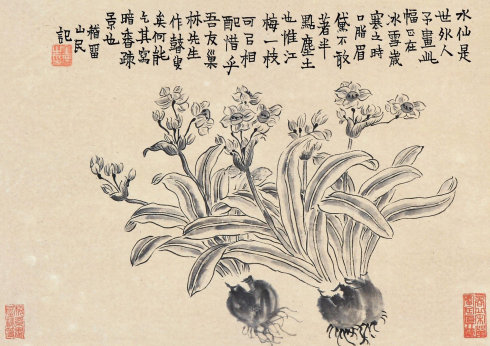 水仙是
世外人
予畫此
幅正在
冰雪歲
寒之時
口脂眉
黛不敢
著半
點塵土
也惟江
梅一枝
可㠯相
配惜乎
吾友巢
林先生
作瞽叟
矣何能
乞其寫
暗香疎
景也
稽留
山民
記